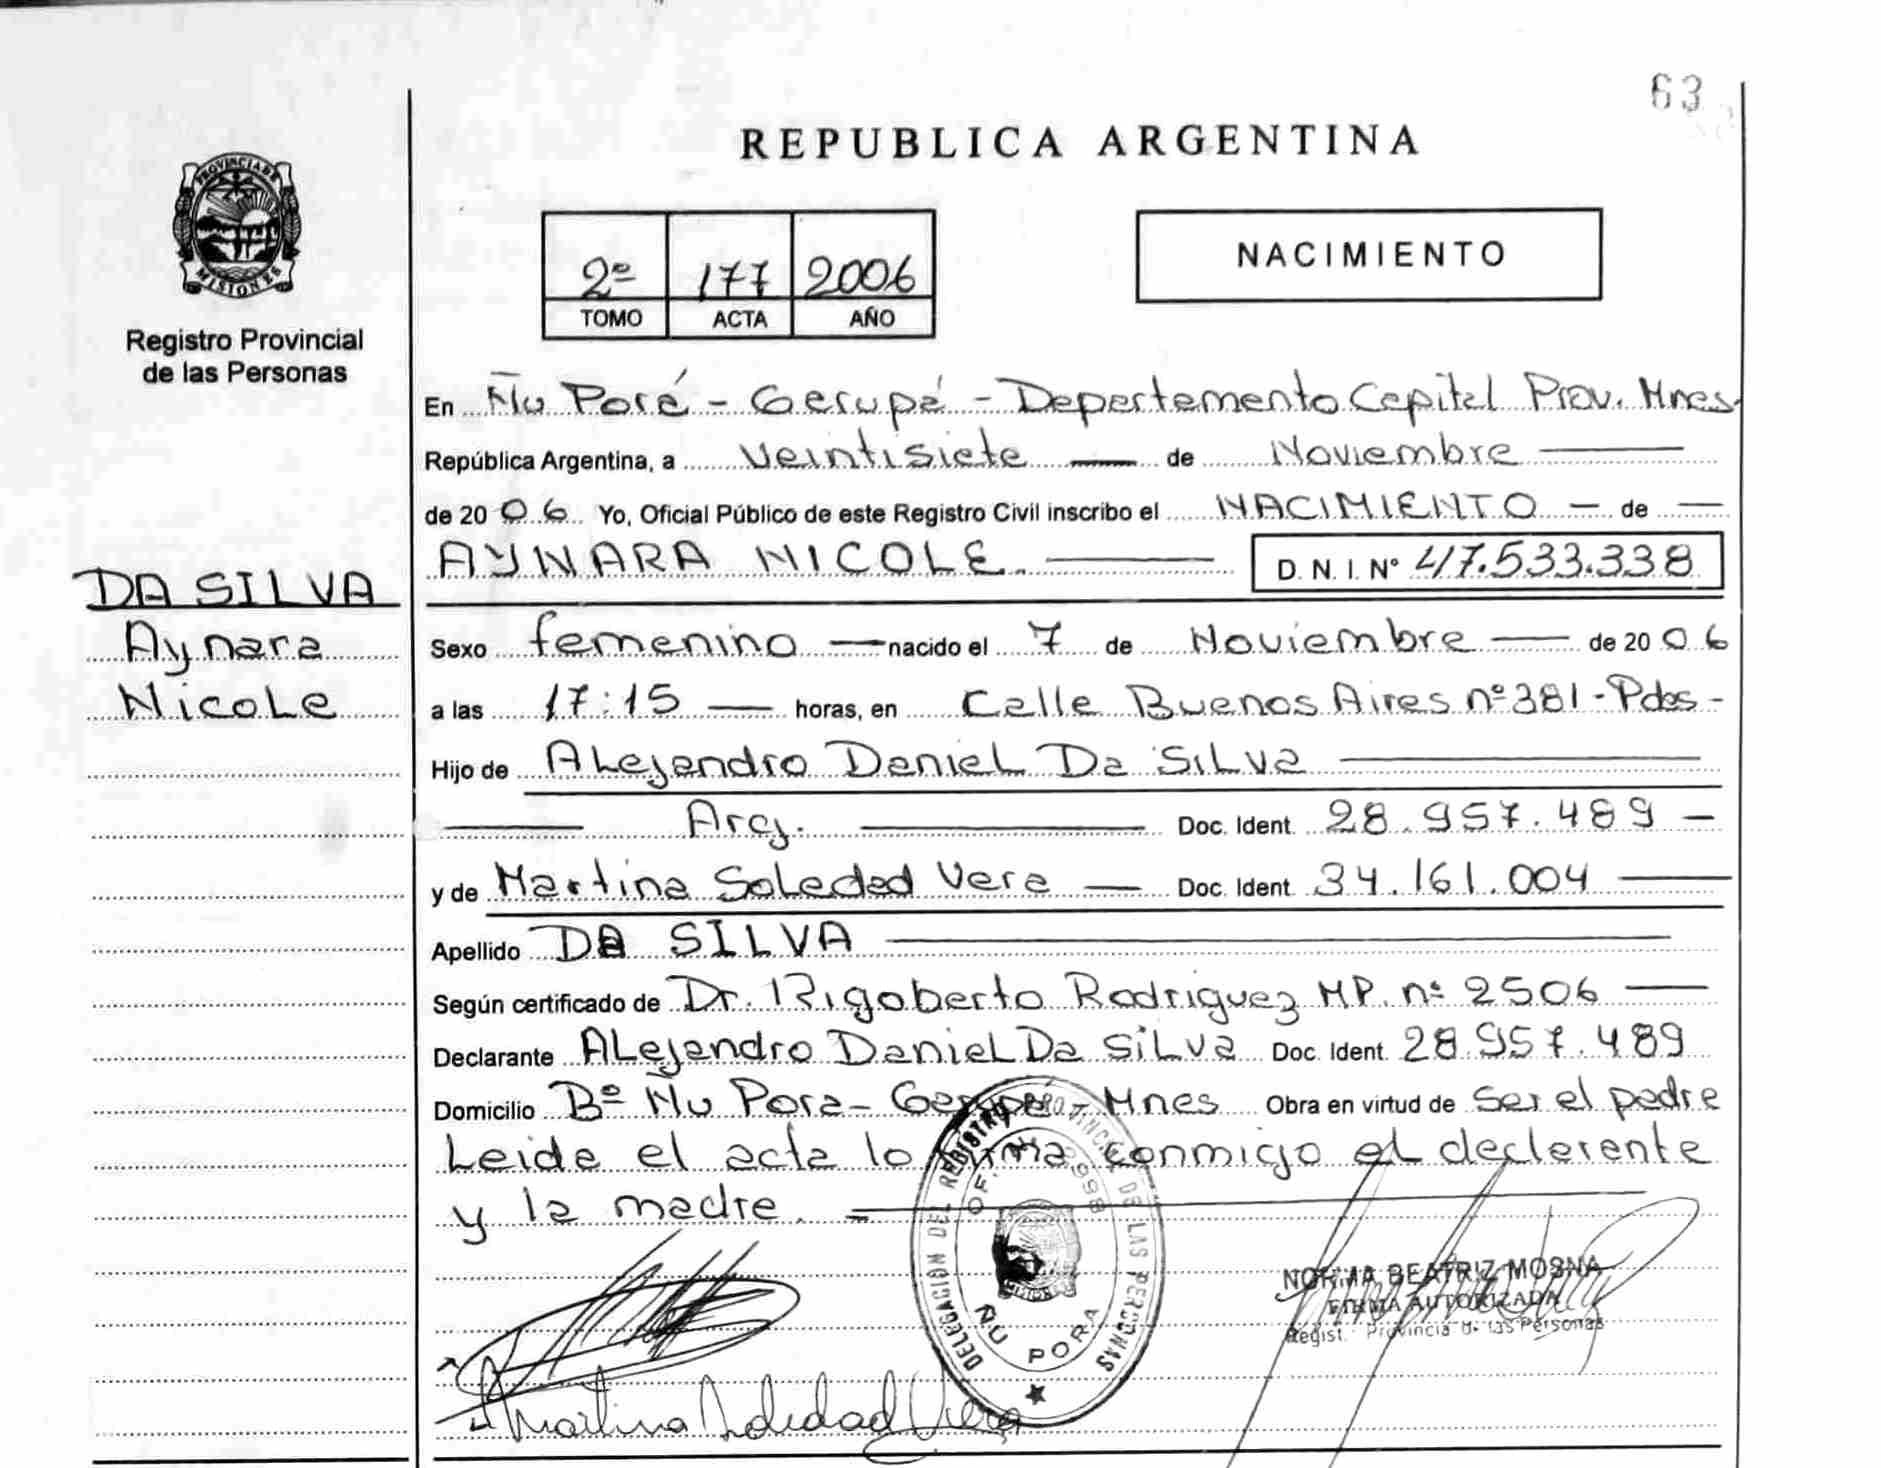 63
REPUBLICA ARGENTINA
PROVINCIA DE
MISIONES
Registro Provincial
de las Personas
2º 177 2006
TOMO ACTA AÑO
NACIMIENTO
En Ñu Porá - Garupá - Departamento Capital Prov. Mnes.
República Argentina, a veintisiete de Noviembre
de 2006 Yo, Oficial Público de este Registro Civil inscribo el NACIMIENTO de
AYNARA NICOLE. D.N.I. Nº 47.533.338
DA SILVA
Aynara
Nicole
Sexo femenino nacido el 7 de Noviembre de 2006
a las 17:15 horas, en Calle Buenos Aires nº 381 - Pdas -
Hijo de Alejandro Daniel Da Silva
Arg. Doc. Ident. 28.957.489
y de Martina Soledad Vera Doc. Ident. 34.161.004
Apellido DA SILVA
Según certificado de Dr. Rigoberto Rodriguez MP. nº 2506
Declarante Alejandro Daniel Da Silva Doc. Ident. 28.957.489
Domicilio Bº Ñu Pora - Garupá - Mnes Obra en virtud de ser el padre
Leida el acta lo firma conmigo el declarante
y la madre.
DELEGACION DEL REGISTRO PROVINCIAL DE LAS PERSONAS
ÑU PORA
NORMA BEATRIZ MOSNA
FIRMA AUTORIZADA
Regist. Provincial de las Personas
Martina Soledad Vera